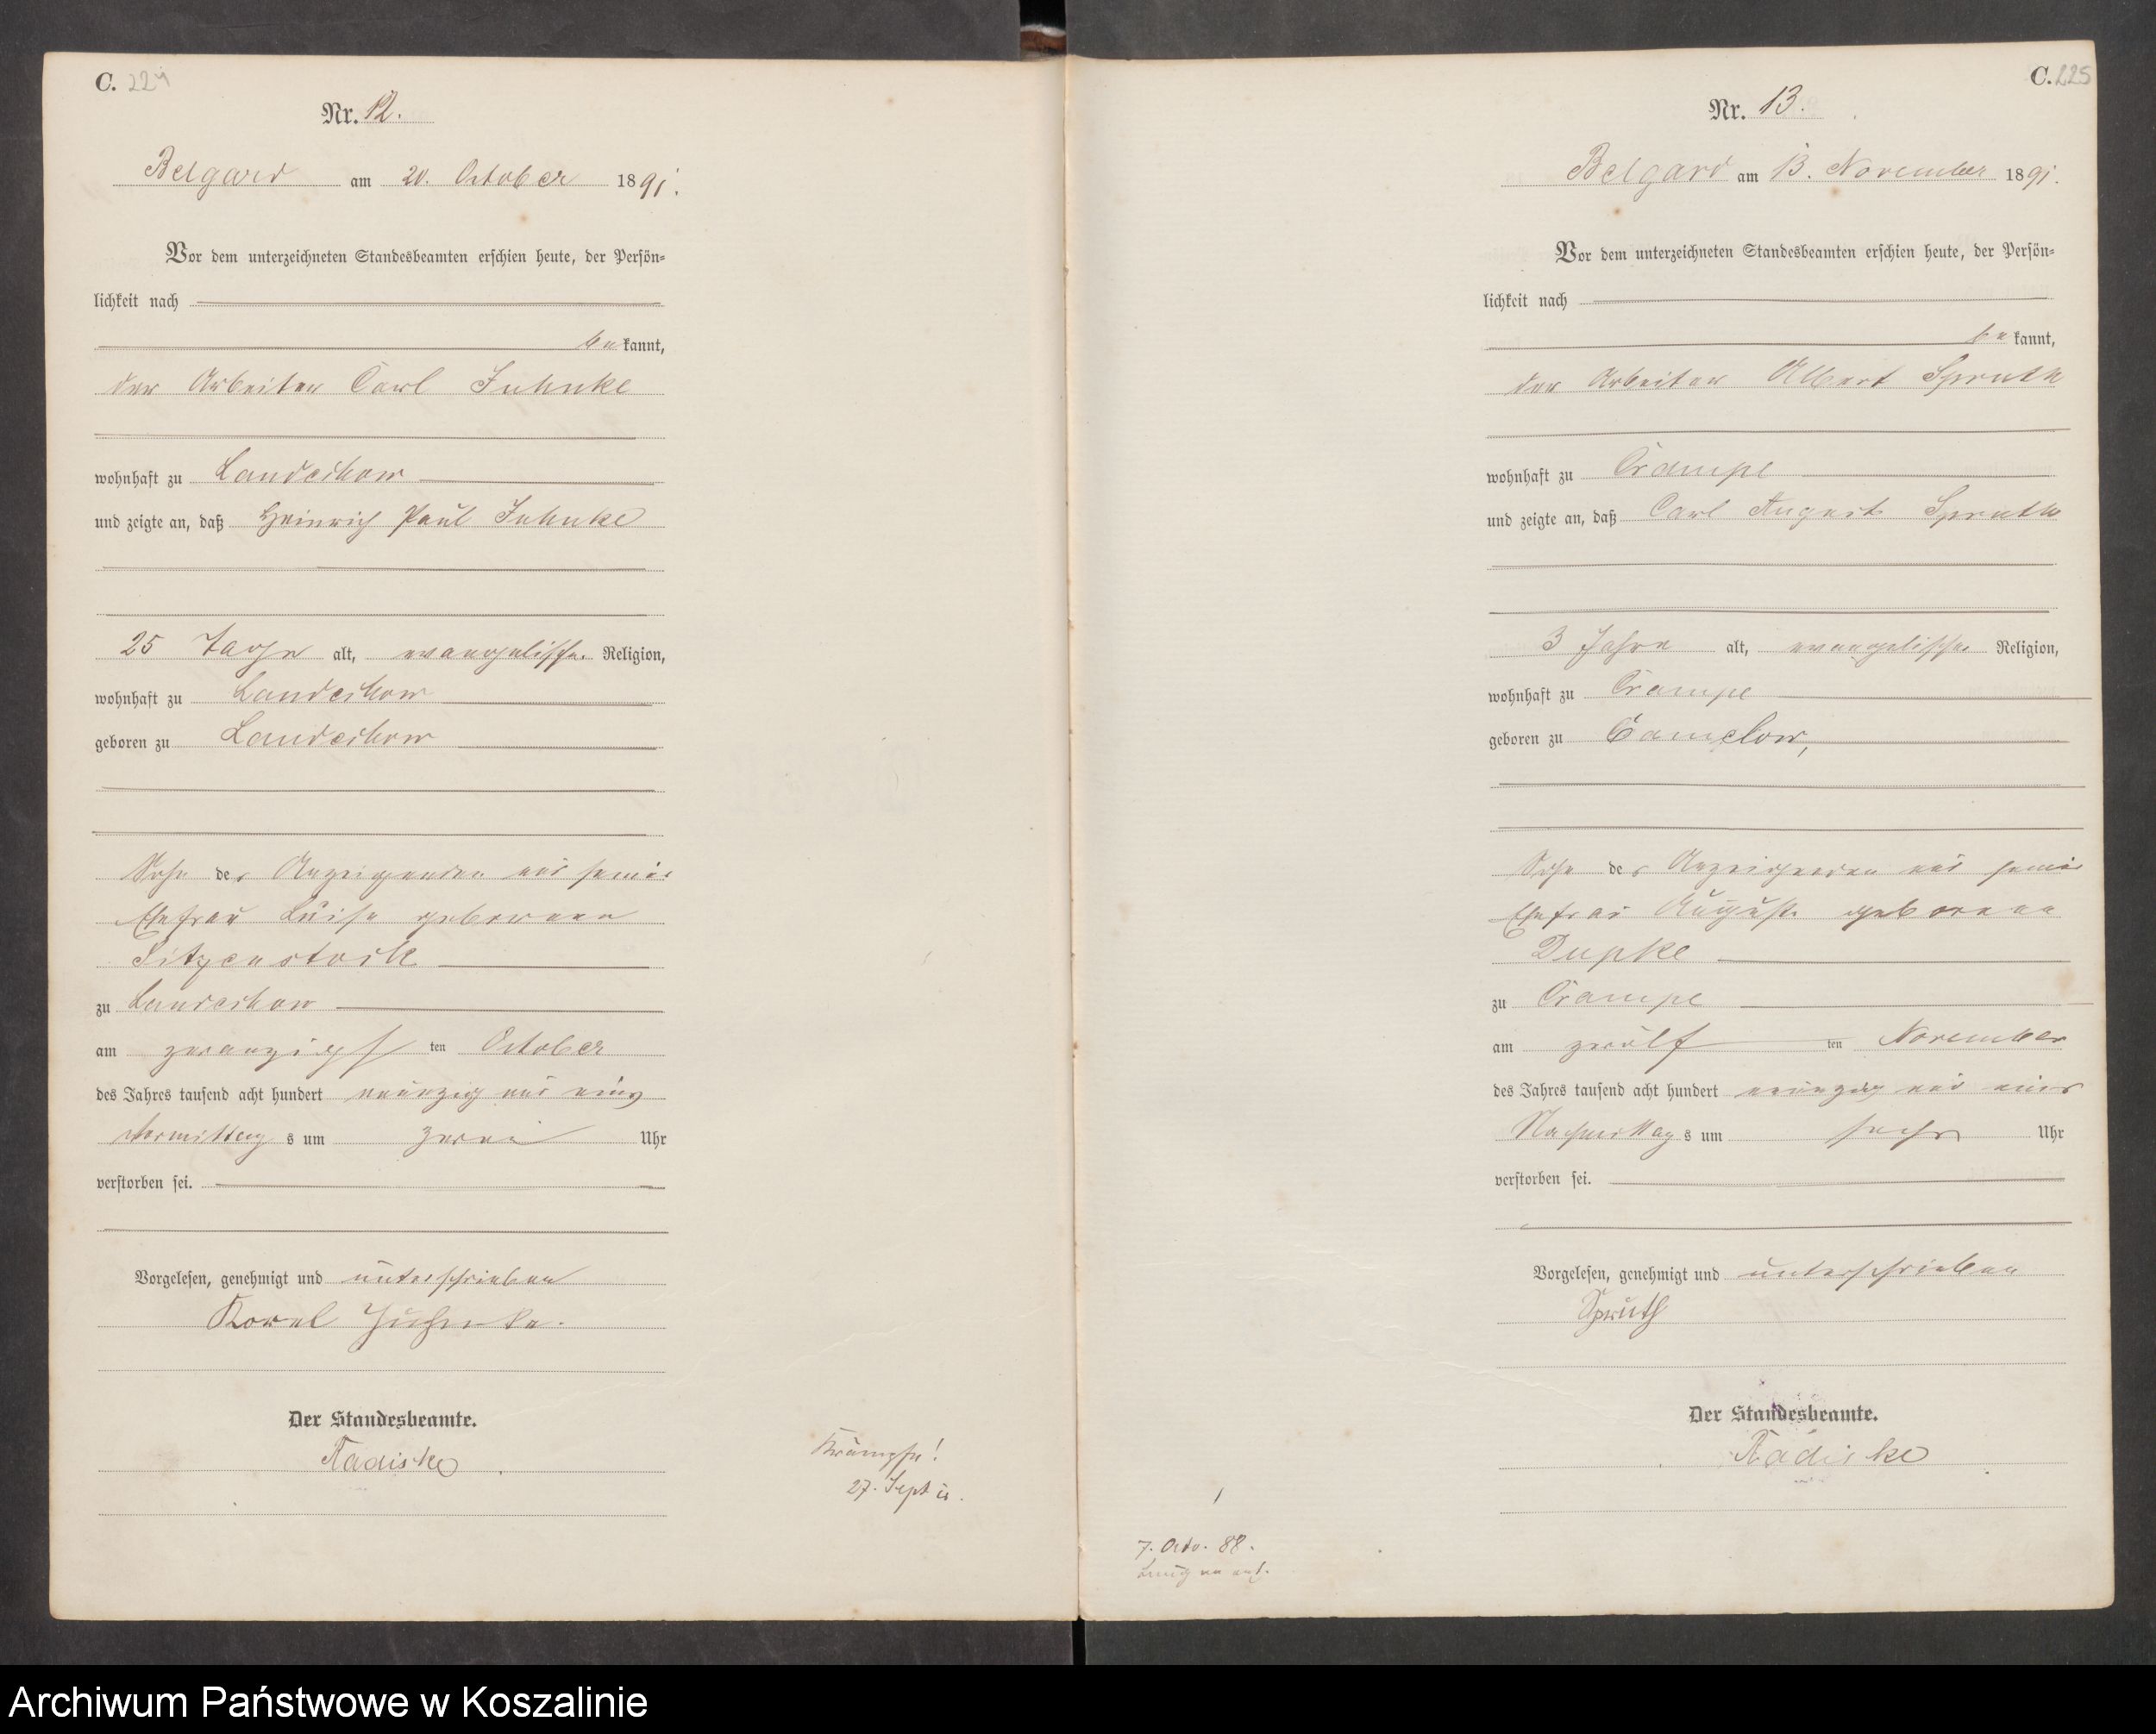 C. 224
Nr. 12.
Belgard am 20. October 1891.
Vor dem unterzeichneten Standesbeamten erschien heute, der Persön-
lichkeit nach
bekannt,
der Arbeiter Carl Juhnke
wohnhaft zu Landechow
und zeigte an, daß Heinrich Paul Juhnke
25 Tage alt, evangelischer Religion,
wohnhaft zu Landechow
geboren zu Landechow
Sohn des Anzeigenden und seiner
Ehefrau Luise geborenen
Titzenstock
zu Landechow
am zwanzigsten October
des Jahres tausend acht hundert neunzig und eins
Vormittags um zwei Uhr
verstorben sei.
Vorgelesen, genehmigt und unterschrieben
Karl Juhnke.
Der Standesbeamte.
Radiske
Krämpfe!
27. Sept
C. 225
Nr. 13.
Belgard am 13. November 1891.
Vor dem unterzeichneten Standesbeamten erschien heute, der Persön-
lichkeit nach
bekannt,
der Arbeiter Albert Spruth
wohnhaft zu Crampe
und zeigte an, daß Carl August Spruth
3 Jahre alt, evangelischer Religion,
wohnhaft zu Crampe
geboren zu Camelow,
Sohn des Anzeigenden und seiner
Ehefrau Auguste geborenen
Dupke
zu Crampe
am zwölften November
des Jahres tausend acht hundert neunzig und eins
Nachmittags um sechs Uhr
verstorben sei.
Vorgelesen, genehmigt und unterschrieben
Spruth
Der Standesbeamte.
Radiske
7. Octo. 88.
Archiwum Państwowe w Koszalinie